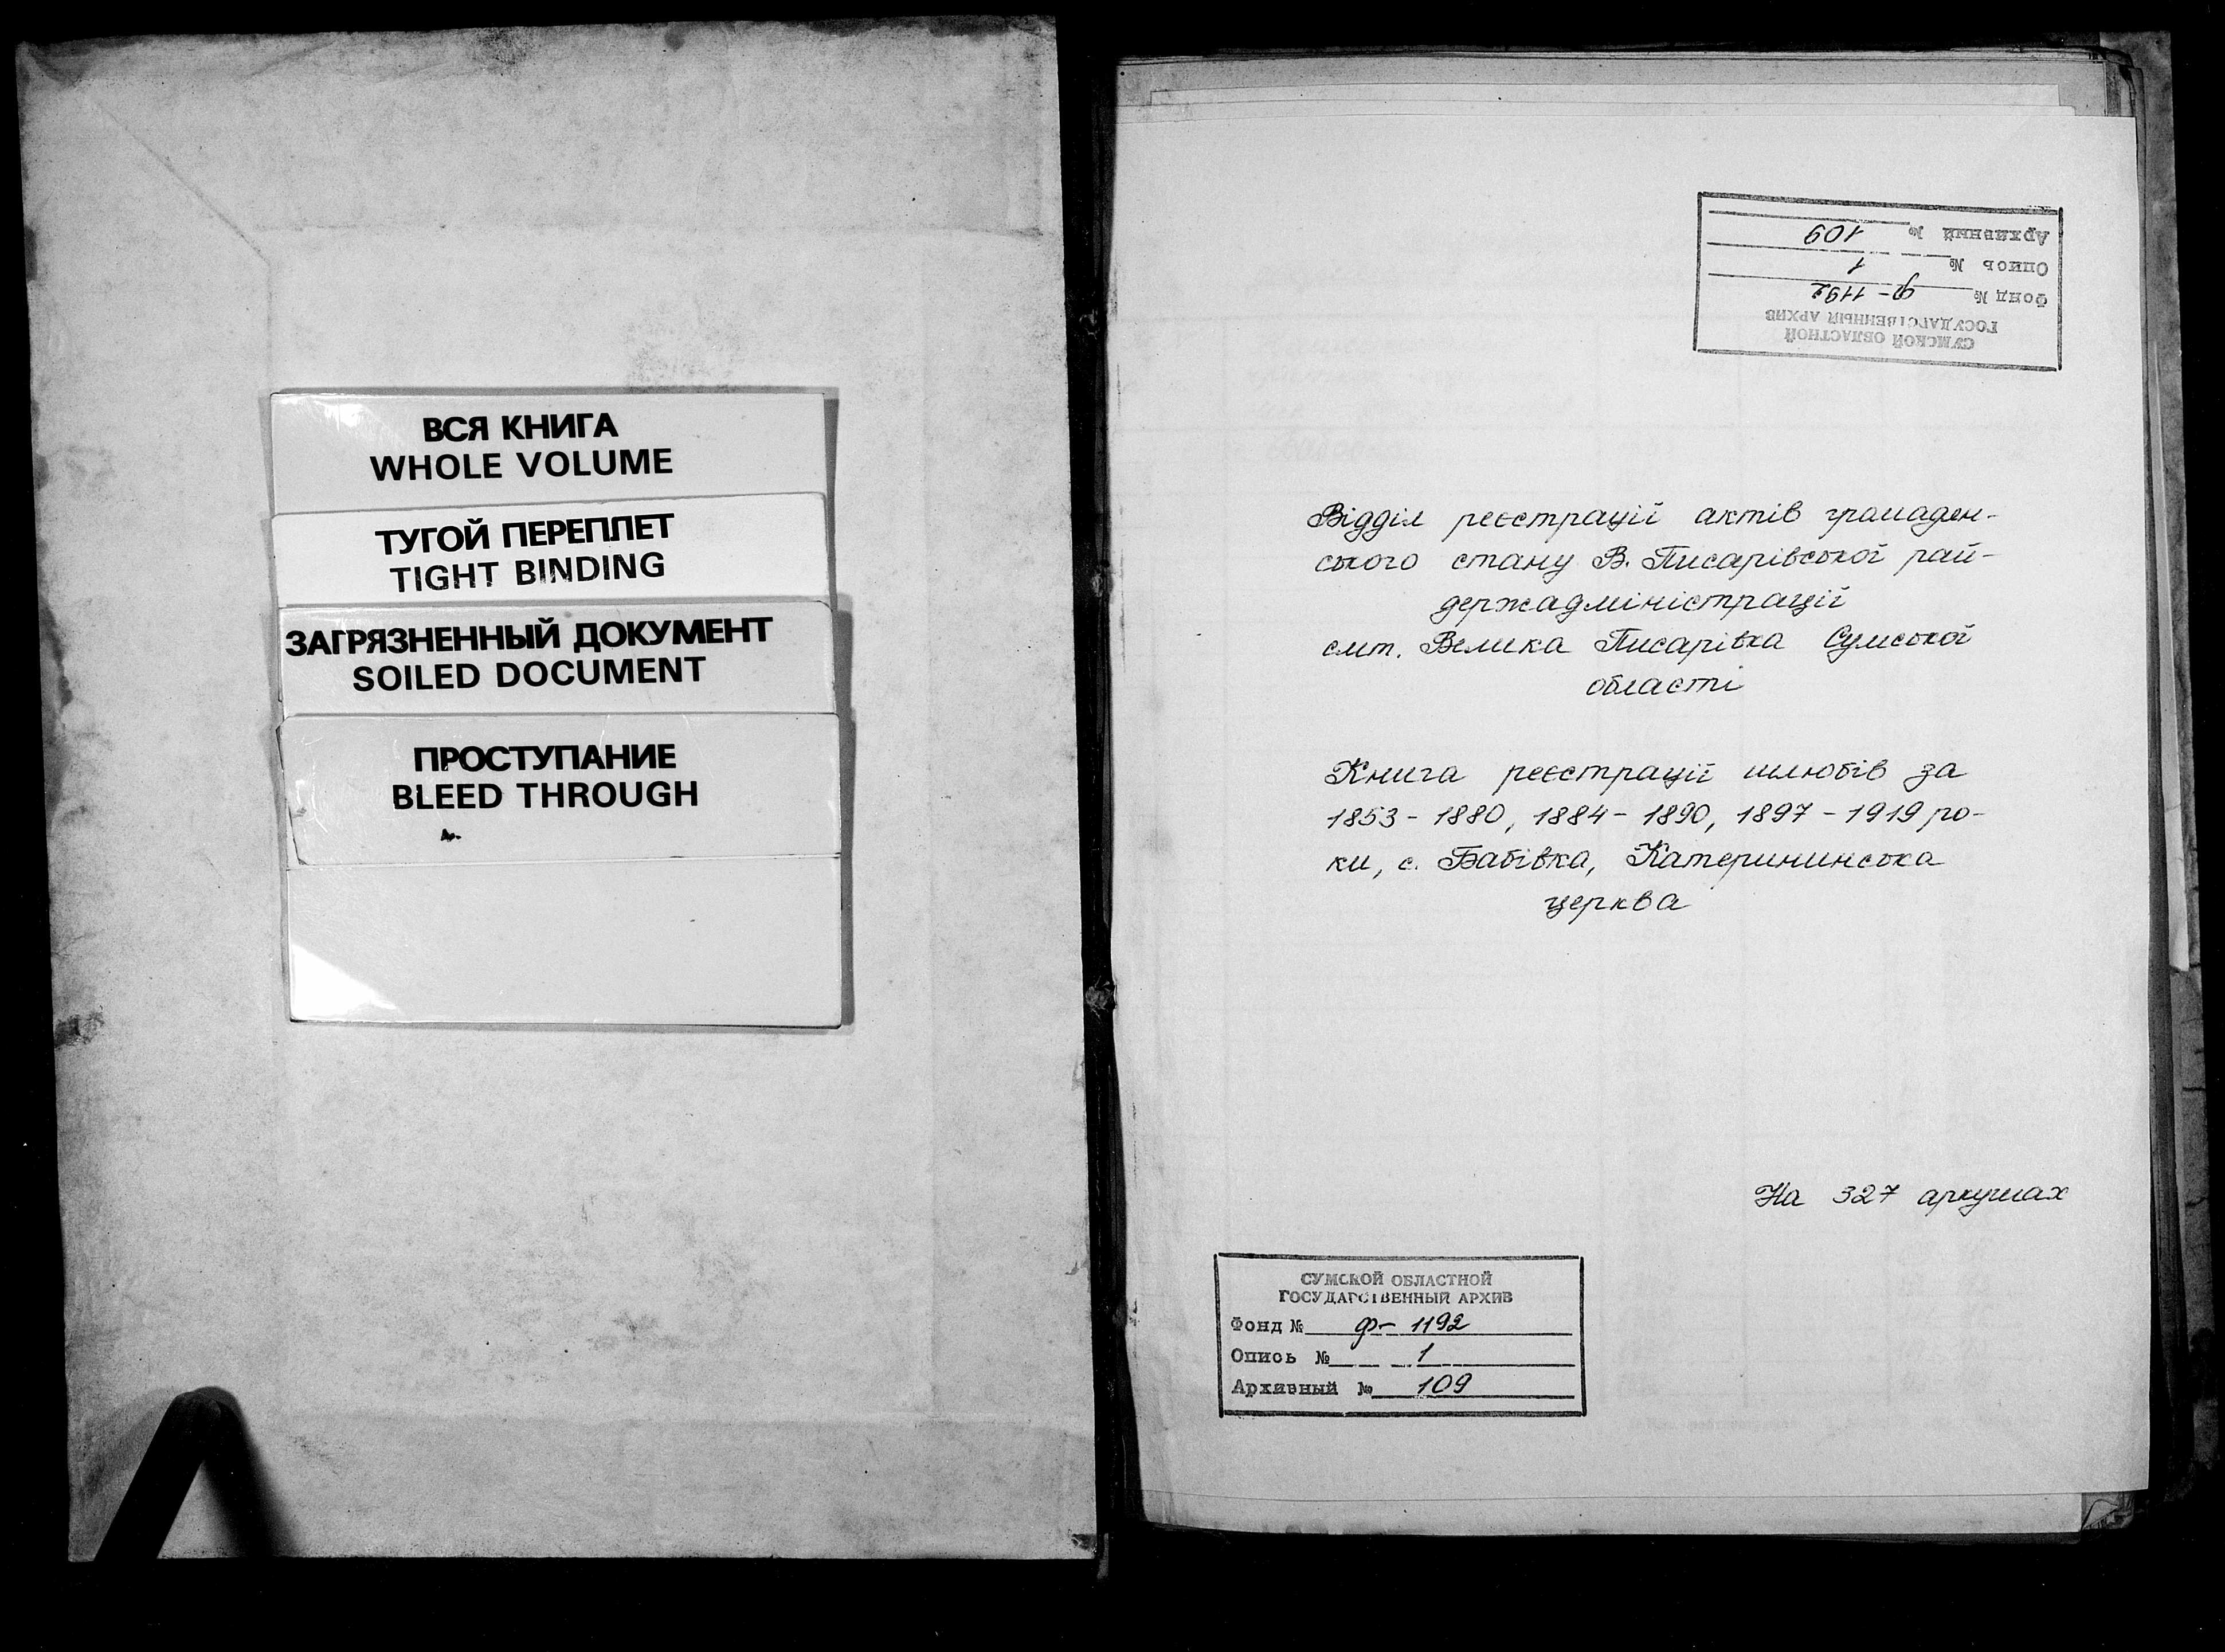 ВСЯ КНИГА
WHOLE VOLUME
ТУГОЙ ПЕРЕПЛЕТ
TIGHT BINDING
ЗАГРЯЗНЕННЫЙ ДОКУМЕНТ
SOILED DOCUMENT
ПРОСТУПАНИЕ
BLEED THROUGH
СУМСКОЙ ОБЛАСТНОЙ
ГОСУДАРСТВЕННЫЙ АРХИВ
Фонд № ф- 1192
Опись № 1
Архивный № 109
Відділ реєстрації актів громаден-
ського стану В. Писарівської рай-
держадміністрації
смт. Велика Писарівка Сумської
області
Книга реєстрації шлюбів за
1853 - 1880, 1884 - 1890, 1897 - 1919 ро-
ки, с. Бабівка, Катерининська
церква
На 327 аркушах
СУМСКОЙ ОБЛАСТНОЙ
ГОСУДАРСТВЕННЫЙ АРХИВ
Фонд № ф- 1192
Опись № 1
Архивный № 109